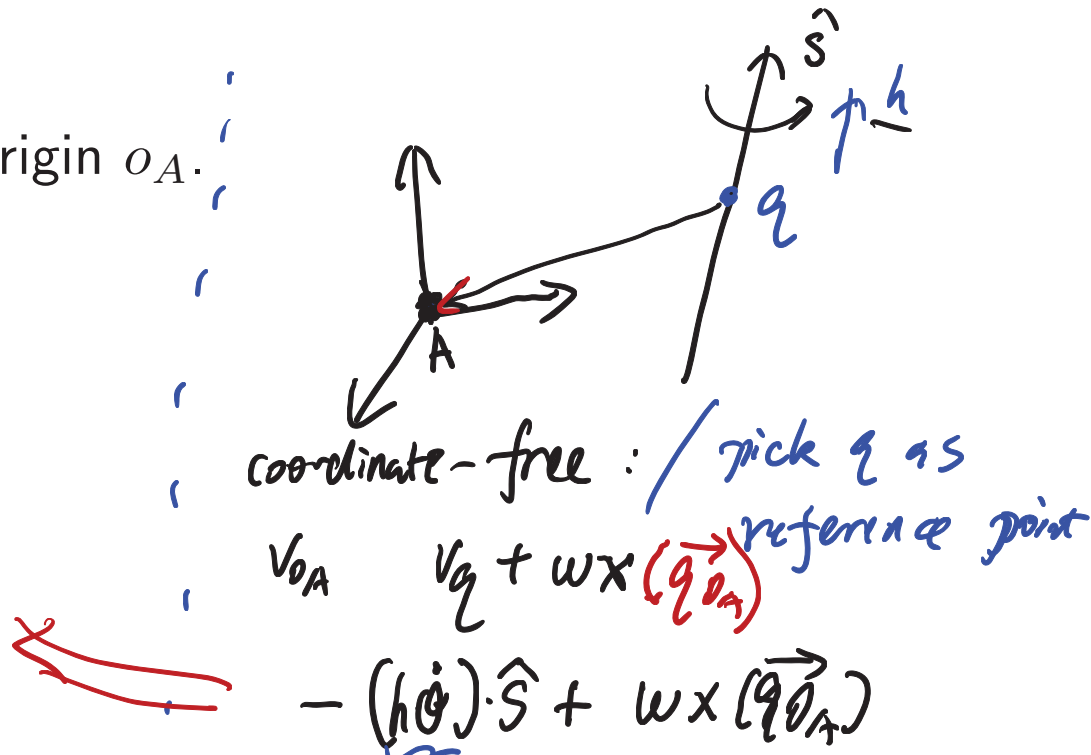 rigin o_A.
ŝ
h
q
A
coordinate-free : / pick q as
reference point
v_{oA} v_q + w × (\overrightarrow{q o_A})
- (h\dot{θ})·ŝ + w × (\overrightarrow{q o_A})